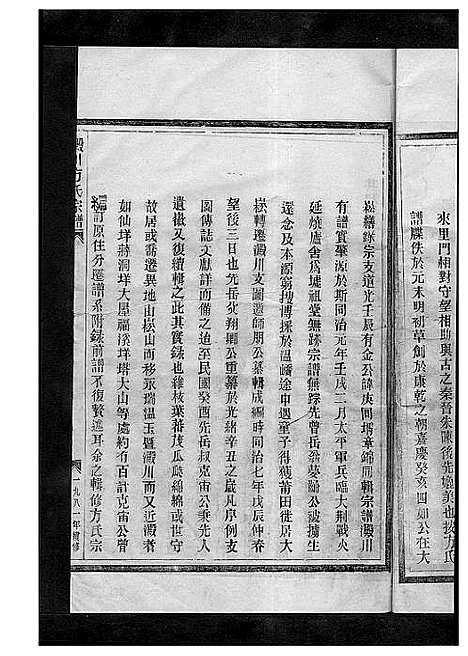 來里門相對守望相助與古之秦晉朱陳後先媲美也按方氏
譜牒佚於元末明初草創於康乾之朝嘉慶癸亥四如公在大
崧繕錄宗支道光壬辰有金公諱庚同堉章錦闓輯宗譜澱川
有譜實肇源於斯同治元年壬戌二月太平軍兵臨大荆戰火
延燒廬舍爲墟祖堂無跡宗譜無踪先曾岳翁夢勷公被擄生
還念及本源窮搜博採於温嶠途中遇童子得獲莆田徙居大
崧轉遷澱川支圖遂師朋公纂輯成編時同治七年戊辰仲春
望後三日也先岳炎翔卿公重纂於光緒辛丑之歲凡序例支
圖傳誌文獻詳而備至於民國癸酉先岳叔克宙公秉先人
遺緻又復續輯之此其實錄也維枝葉蕃茂瓜瓞綿綿或世守
故居或喬遷異地由崧山而移永瑞温玉暨澱川而近澱者
如仙垟蔣洞垟大屋福溪垟塔大山等處約有百計克宙公曾
編訂原住分遷譜系附錄前譜不復贅述耳余之輯修方氏宗
澱川方氏宗譜
一九八一年續修